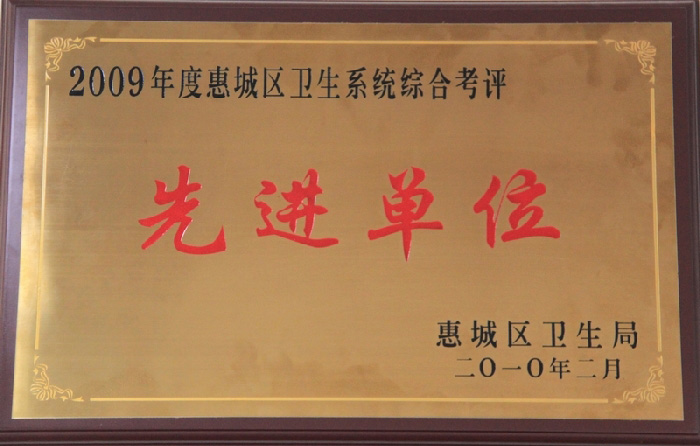 2009年度惠城区卫生系统综合考评
先进单位
惠城区卫生局
二〇一〇年二月